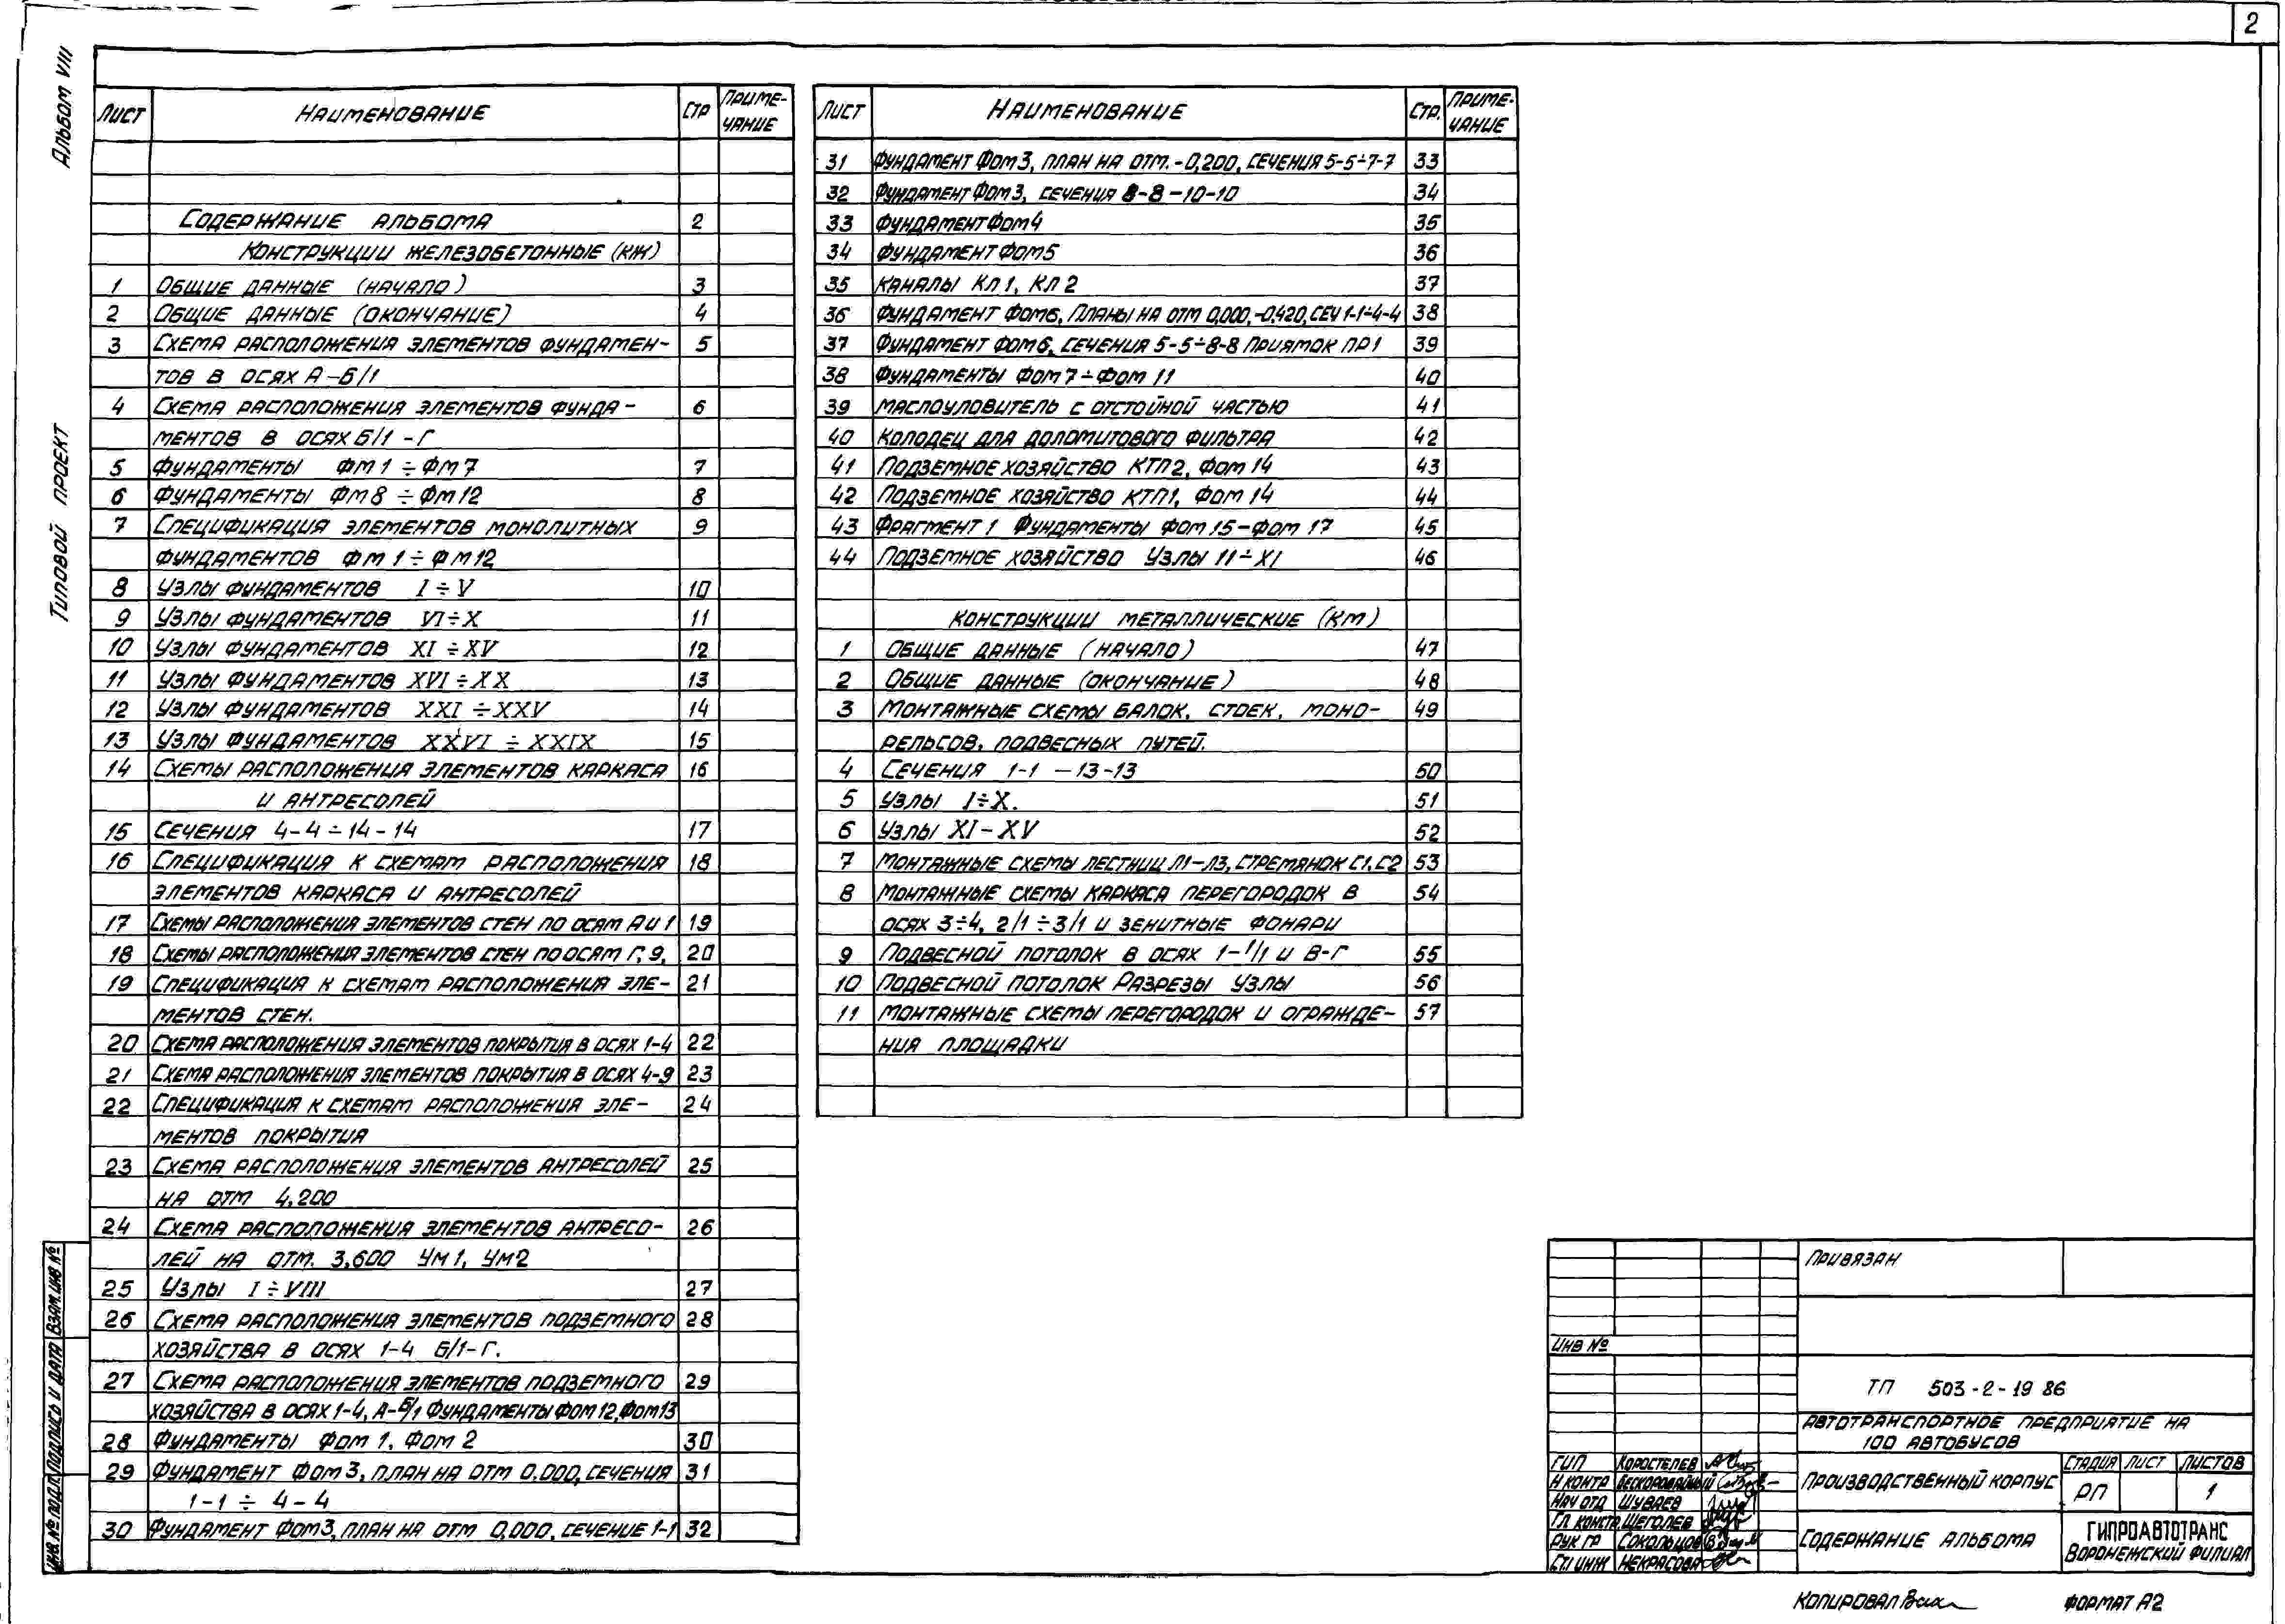 2
Альбом VIII
Типовой проект
Лист Наименование Стр Приме-
чание
Содержание альбома 2
Конструкции железобетонные (КЖ)
1 Общие данные (начало) 3
2 Общие данные (окончание) 4
3 Схема расположения элементов фундамен- 5
тов в осях А-Б/1
4 Схема расположения элементов фунда- 6
ментов в осях Б/1-Г
5 Фундаменты Фм1÷Фм7 7
6 Фундаменты Фм8÷Фм12 8
7 Спецификация элементов монолитных 9
фундаментов Фм1÷Фм12
8 Узлы фундаментов I÷V 10
9 Узлы фундаментов VI÷X 11
10 Узлы фундаментов XI÷XV 12
11 Узлы фундаментов XVI÷XX 13
12 Узлы фундаментов XXI÷XXV 14
13 Узлы фундаментов XXVI÷XXIX 15
14 Схемы расположения элементов каркаса 16
и антресолей
15 Сечения 4-4÷14-14 17
16 Спецификация к схемам расположения 18
элементов каркаса и антресолей
17 Схемы расположения элементов стен по осям А и 1 19
18 Схемы расположения элементов стен по осям Г, 9, 20
19 Спецификация к схемам расположения эле- 21
ментов стен.
20 Схема расположения элементов покрытия в осях 1-4 22
21 Схема расположения элементов покрытия в осях 4-9 23
22 Спецификация к схемам расположения эле- 24
ментов покрытия
23 Схема расположения элементов антресолей 25
на отм 4,200
24 Схема расположения элементов антресо- 26
лей на отм. 3,600 Ум1, Ум2
25 Узлы I÷VIII 27
26 Схема расположения элементов подземного 28
хозяйства в осях 1-4 Б/1-Г.
27 Схема расположения элементов подземного 29
хозяйства в осях 1-4, А-Б/1 Фундаменты Фом12, Фом13
28 Фундаменты Фом 1, Фом 2 30
29 Фундамент Фом3, план на отм 0,000, сечения 31
1-1÷4-4
30 Фундамент Фом3, план на отм 0,000, сечение 1-1 32
Лист Наименование Стр. Приме-
чание
31 Фундамент Фом3, план на отм. -0,200, сечения 5-5÷7-7 33
32 Фундамент Фом3, сечения 8-8-10-10 34
33 Фундамент Фом4 35
34 Фундамент Фом5 36
35 Каналы Кл1, Кл2 37
36 Фундамент Фом6, Планы на отм 0,000, -0,420, сеч 1-1÷4-4 38
37 Фундамент Фом6, сечения 5-5÷8-8 Приямок ПР1 39
38 Фундаменты Фом7÷Фом 11 40
39 Маслоуловитель с отстойной частью 41
40 Колодец для доломитового фильтра 42
41 Подземное хозяйство КТП2, Фом 14 43
42 Подземное хозяйство КТП1, Фом 14 44
43 Фрагмент 1 Фундаменты Фом 15-Фом 17 45
44 Подземное хозяйство Узлы 11÷XI 46
Конструкции металлические (КМ)
1 Общие данные (начало) 47
2 Общие данные (окончание) 48
3 Монтажные схемы балок, стоек, моно- 49
рельсов, подвесных путей.
4 Сечения 1-1 - 13-13 50
5 Узлы I÷X. 51
6 Узлы XI-XV 52
7 Монтажные схемы лестниц Л1-Л3, стремянок С1, С2 53
8 Монтажные схемы каркаса перегородок в 54
осях 3÷4, 2/1÷3/1 и зенитные фонари
9 Подвесной потолок в осях 1-1/1 и В-Г 55
10 Подвесной потолок Разрезы Узлы 56
11 Монтажные схемы перегородок и огражде- 57
ния площадки
Взам. инв №
Подпись и дата
Инв. № подл.
Привязан
Инв №
ТП 503-2-19 86
Автотранспортное предприятие на
100 автобусов
ГИП Коростелев
Н контр Бескоровайный
Нач отд Шуваев
Гл констр. Щеголев
Рук гр Сокольцов
Ст инж Некрасова
Производственный корпус
Стадия Лист Листов
РП 1
Содержание альбома
ГИПРОАВТОТРАНС
Воронежский филиал
Копировал
Формат А2